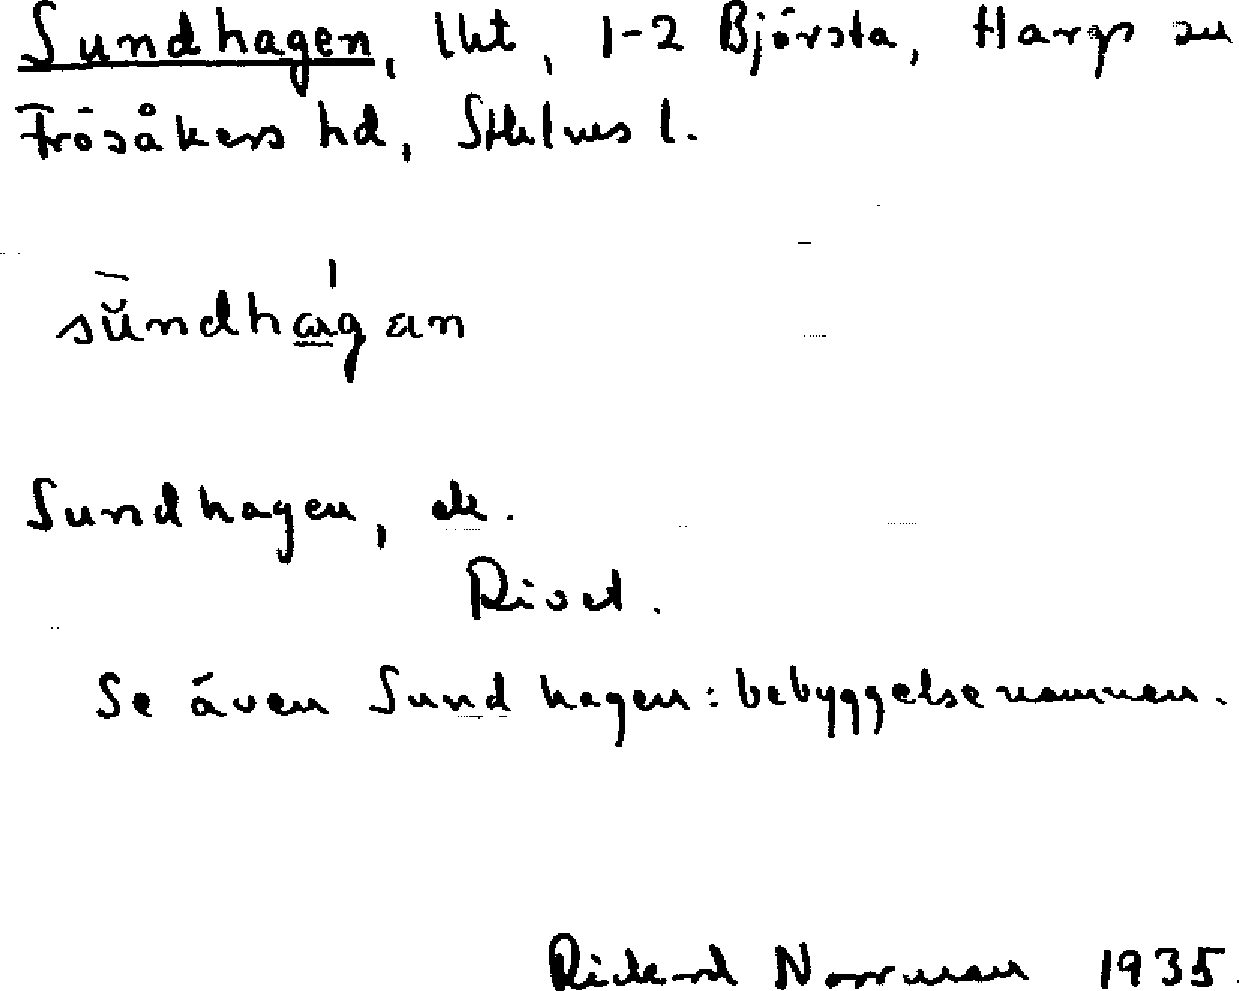 Sundhagen, lht, 1-2 Björsta, Harg sn
Frösåkers hd, Sthlms l.
sŭndhagan
Sundhagen, ek.
Se även Sundhagen: bebyggelsenamnen.
Rickard Norrman 1935.